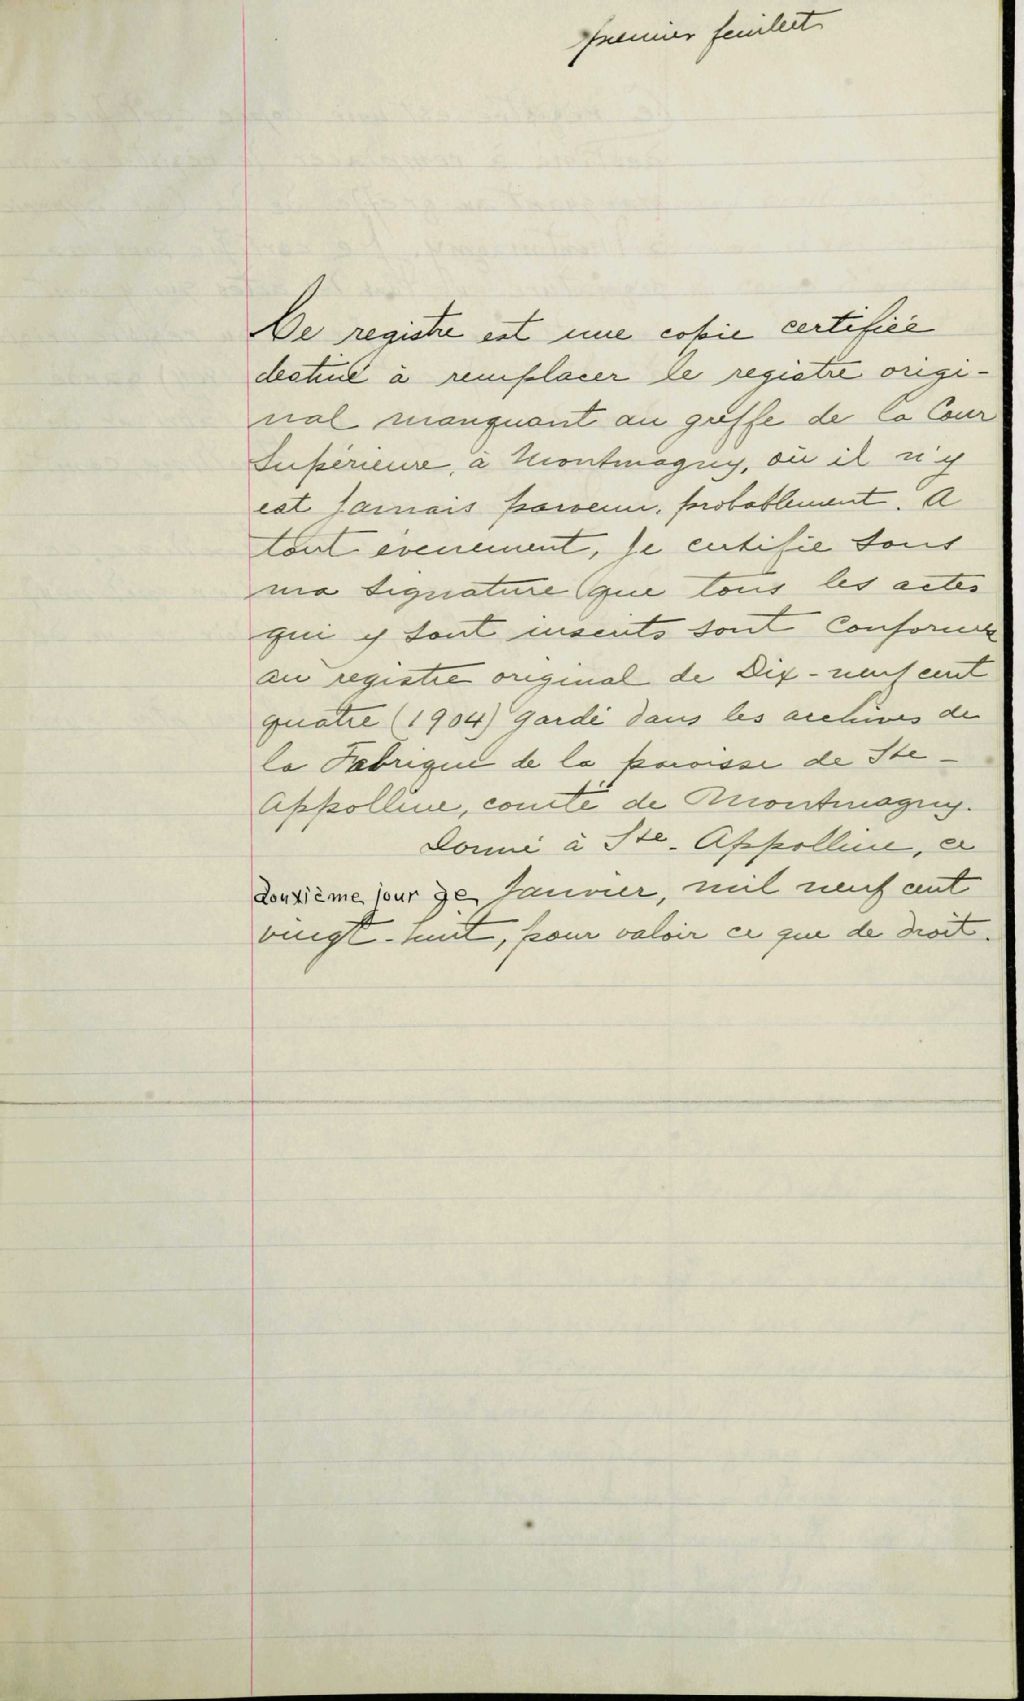 premier feuillet
Ce registre est une copie certifiée
destiné à remplacer le registre origi-
nal manquant au greffe de la Cour
Supérieure, à Montmagny, où il n'y
est jamais parvenu, probablement. A
tout évenement, je certifie sous
ma signature que tous les actes
qui y sont inscrits sont conformes
au registre original de Dix-neuf cent
quatre (1904) gardé dans les archives de
la Fabrique de la paroisse de Ste-
Appolline, comté de Montmagny.
Donné à Ste-Appolline, ce
douxième jour de Janvier, mil neuf cent
vingt-huit, pour valoir ce que de droit.